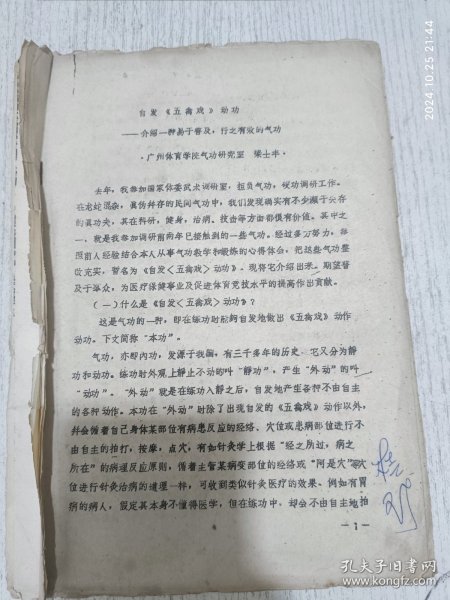 2024.10.25 21:44
自发《五禽戏》动功
——介绍一种易于普及，行之有效的气功
·广州体育学院气功研究室 梁士丰·
去年，我参加国家体委武术调研室，担负气功，硬功调研工作。
在龙蛇混杂，真伪并存的民间气功中，我们发现确实有不少濒于失存
的真功夫，其在科研，健身，治病，技击等方面都很有价值。其中之
一，就是我参加调研前两年已接触到的一些气功。经过多方努力，参
照前人经验结合本人从事气功教学和锻炼的心得体会，把这些气功整
改充实，暂名为《自发〈五禽戏〉动功》。现将它介绍出来，期望普
及于群众，为医疗保健事业及促进体育竞技水平的提高作出贡献。
（一）什么是《自发〈五禽戏〉动功》？
这是气功的一种，即在练功时能够自发地做出《五禽戏》动作
动功。下文简称“本功”。
气功，亦即内功，发源于我国，有三千多年的历史，它又分为静
功和动功。练功时外观上静止不动的叫“静功”，产生“外动”的叫
“动功”。“外动”就是在练功入静之后，自发地产生各种不由自主
的各种动作。本功在“外动”时除了出现自发的《五禽戏》动作以外，
并会循着自己身体某部位有病患反应的经络、穴位或患病部位进行不
由自主的拍打，按摩，点穴，有如针灸学上根据“经之所过，病之
所在”的病理反应原则，循着主管某病变部位的经络或“阿是穴”穴
位进行针灸治病的道理一样，可收到类似针灸医疗的效果。例如有胃
病的病人，假定其本身不懂得医学，但在练功中，却会不由自主地拍
—1—
孔夫子旧书网
www.kongfz.com